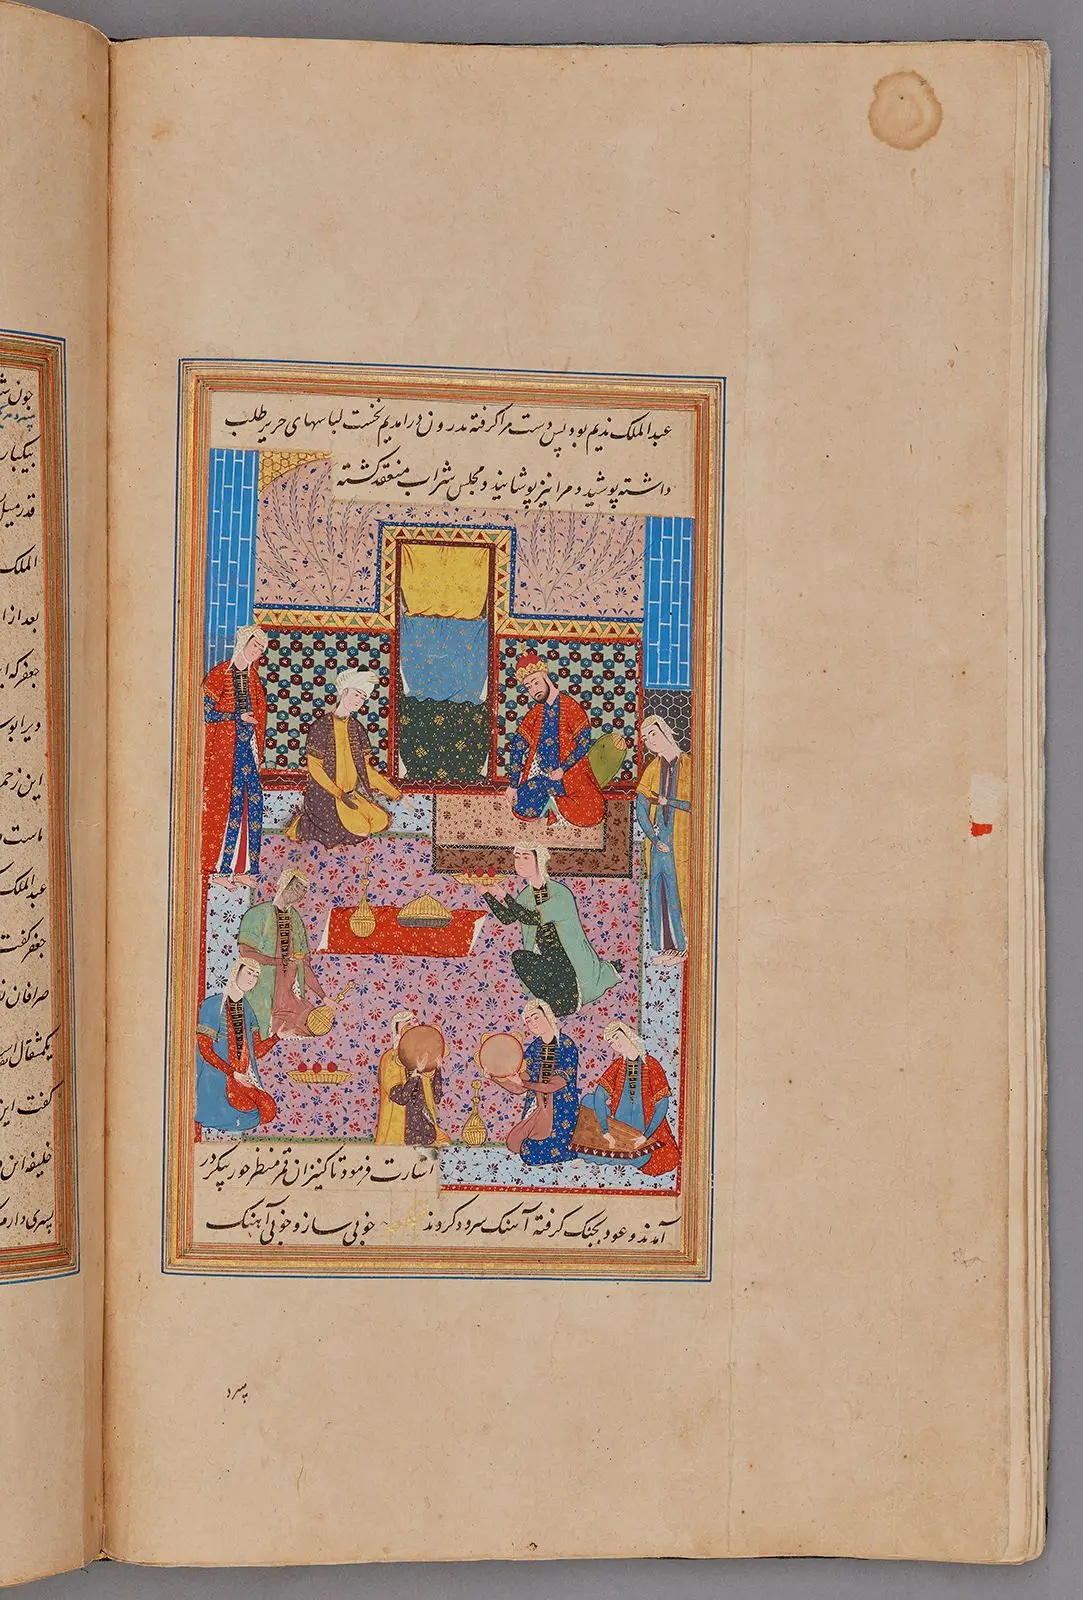 عبدالملک ندیم بود پس دست مرا گرفته بدرون درآمدیم نخست لباسهای حریر طلب
داشته پوشید و مرا نیز پوشانید و مجلس شراب منعقد کشته
اشارت فرمود تا کنیزان قمر منظر حور پیکر در
آمدند و عود بجنک گرفته آهنک سرود کردند خوبی ساز و خوبی آهنک
پسرد
جون
بیکبار
قدر میل
الملک
بعد از
جعفر که
ویرا
این زخم
ماست
عبدالملک
جعفر کفت
صرافان
یکمثقال
کفت این
خلیفه این
پسری دارم